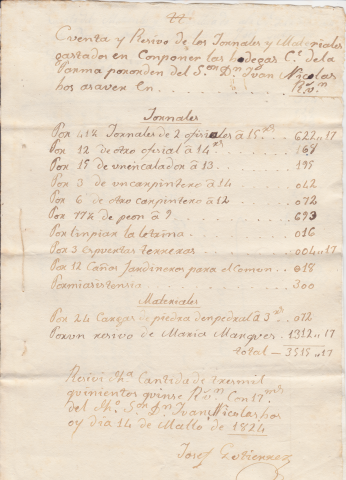 Cuenta y Resivo de los Jornales y Materiales
gastados en Conponer las bodegas C.ᵉ de la
Parma pororden del S.ᵒⁿ D.ⁿ Ivan Nicolas
hos asaver En R.ˢv.ⁿ
Jornales
Por 41½ Jornales de 2 ofisiales à 15 rˢ 622,,17
Por 12 de otro ofisial à 14 rˢ 168
Por 15 de unencalador à 13 195
Por 3 de uncarpintero à 14 042
Por 6 de otro carpintero à 12 072
Por 77½ de peon à 9 693
Por linpiar la letrina 016
Por 3 espuertas terreras 004,,17
Por 12 Caños Jardineros para el comun 018
Pormiasistensia 300
Materiales
Por 24 Cargas de piedra 3 rˢ 072
Porun resivo de Maria 1312,,17
total — 3515,,17
Resivi dh.ᵃ Cantidad de tresmil
quinientos quinse R.ˢv.ⁿ Con 17 mˢ
del dh.ᵒ S.ᵒⁿ D.ⁿ Ivan Nicolas hos
oy dia 14 de de 1824
Josef Gutierrez